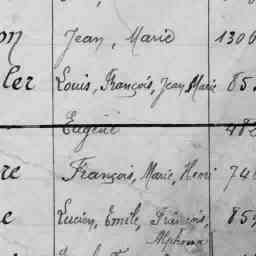 on Jean, Marie 1306
ler Louis, François, Jean Marie 85
Eugène 48
re François, Marie, Henri 74
e Lucien, Emile, François, 85
Alphonse